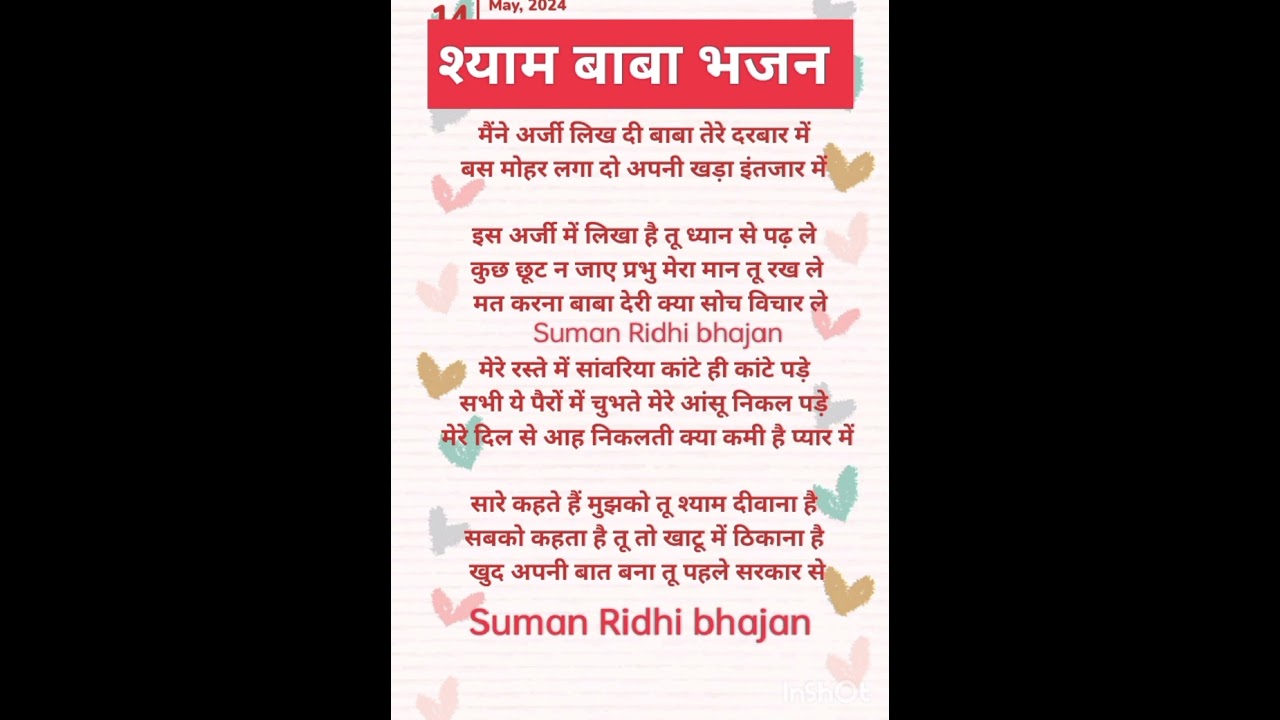 14
May, 2024
श्याम बाबा भजन
मैंने अर्जी लिख दी बाबा तेरे दरबार में
बस मोहर लगा दो अपनी खड़ा इंतजार में
इस अर्जी में लिखा है तू ध्यान से पढ़ ले
कुछ छूट न जाए प्रभु मेरा मान तू रख ले
मत करना बाबा देरी क्या सोच विचार ले
Suman Ridhi bhajan
मेरे रस्ते में सांवरिया कांटे ही कांटे पड़े
सभी ये पैरों में चुभते मेरे आंसू निकल पड़े
मेरे दिल से आह निकलती क्या कमी है प्यार में
सारे कहते हैं मुझको तू श्याम दीवाना है
सबको कहता है तू तो खाटू में ठिकाना है
खुद अपनी बात बना तू पहले सरकार से
Suman Ridhi bhajan
InShOt